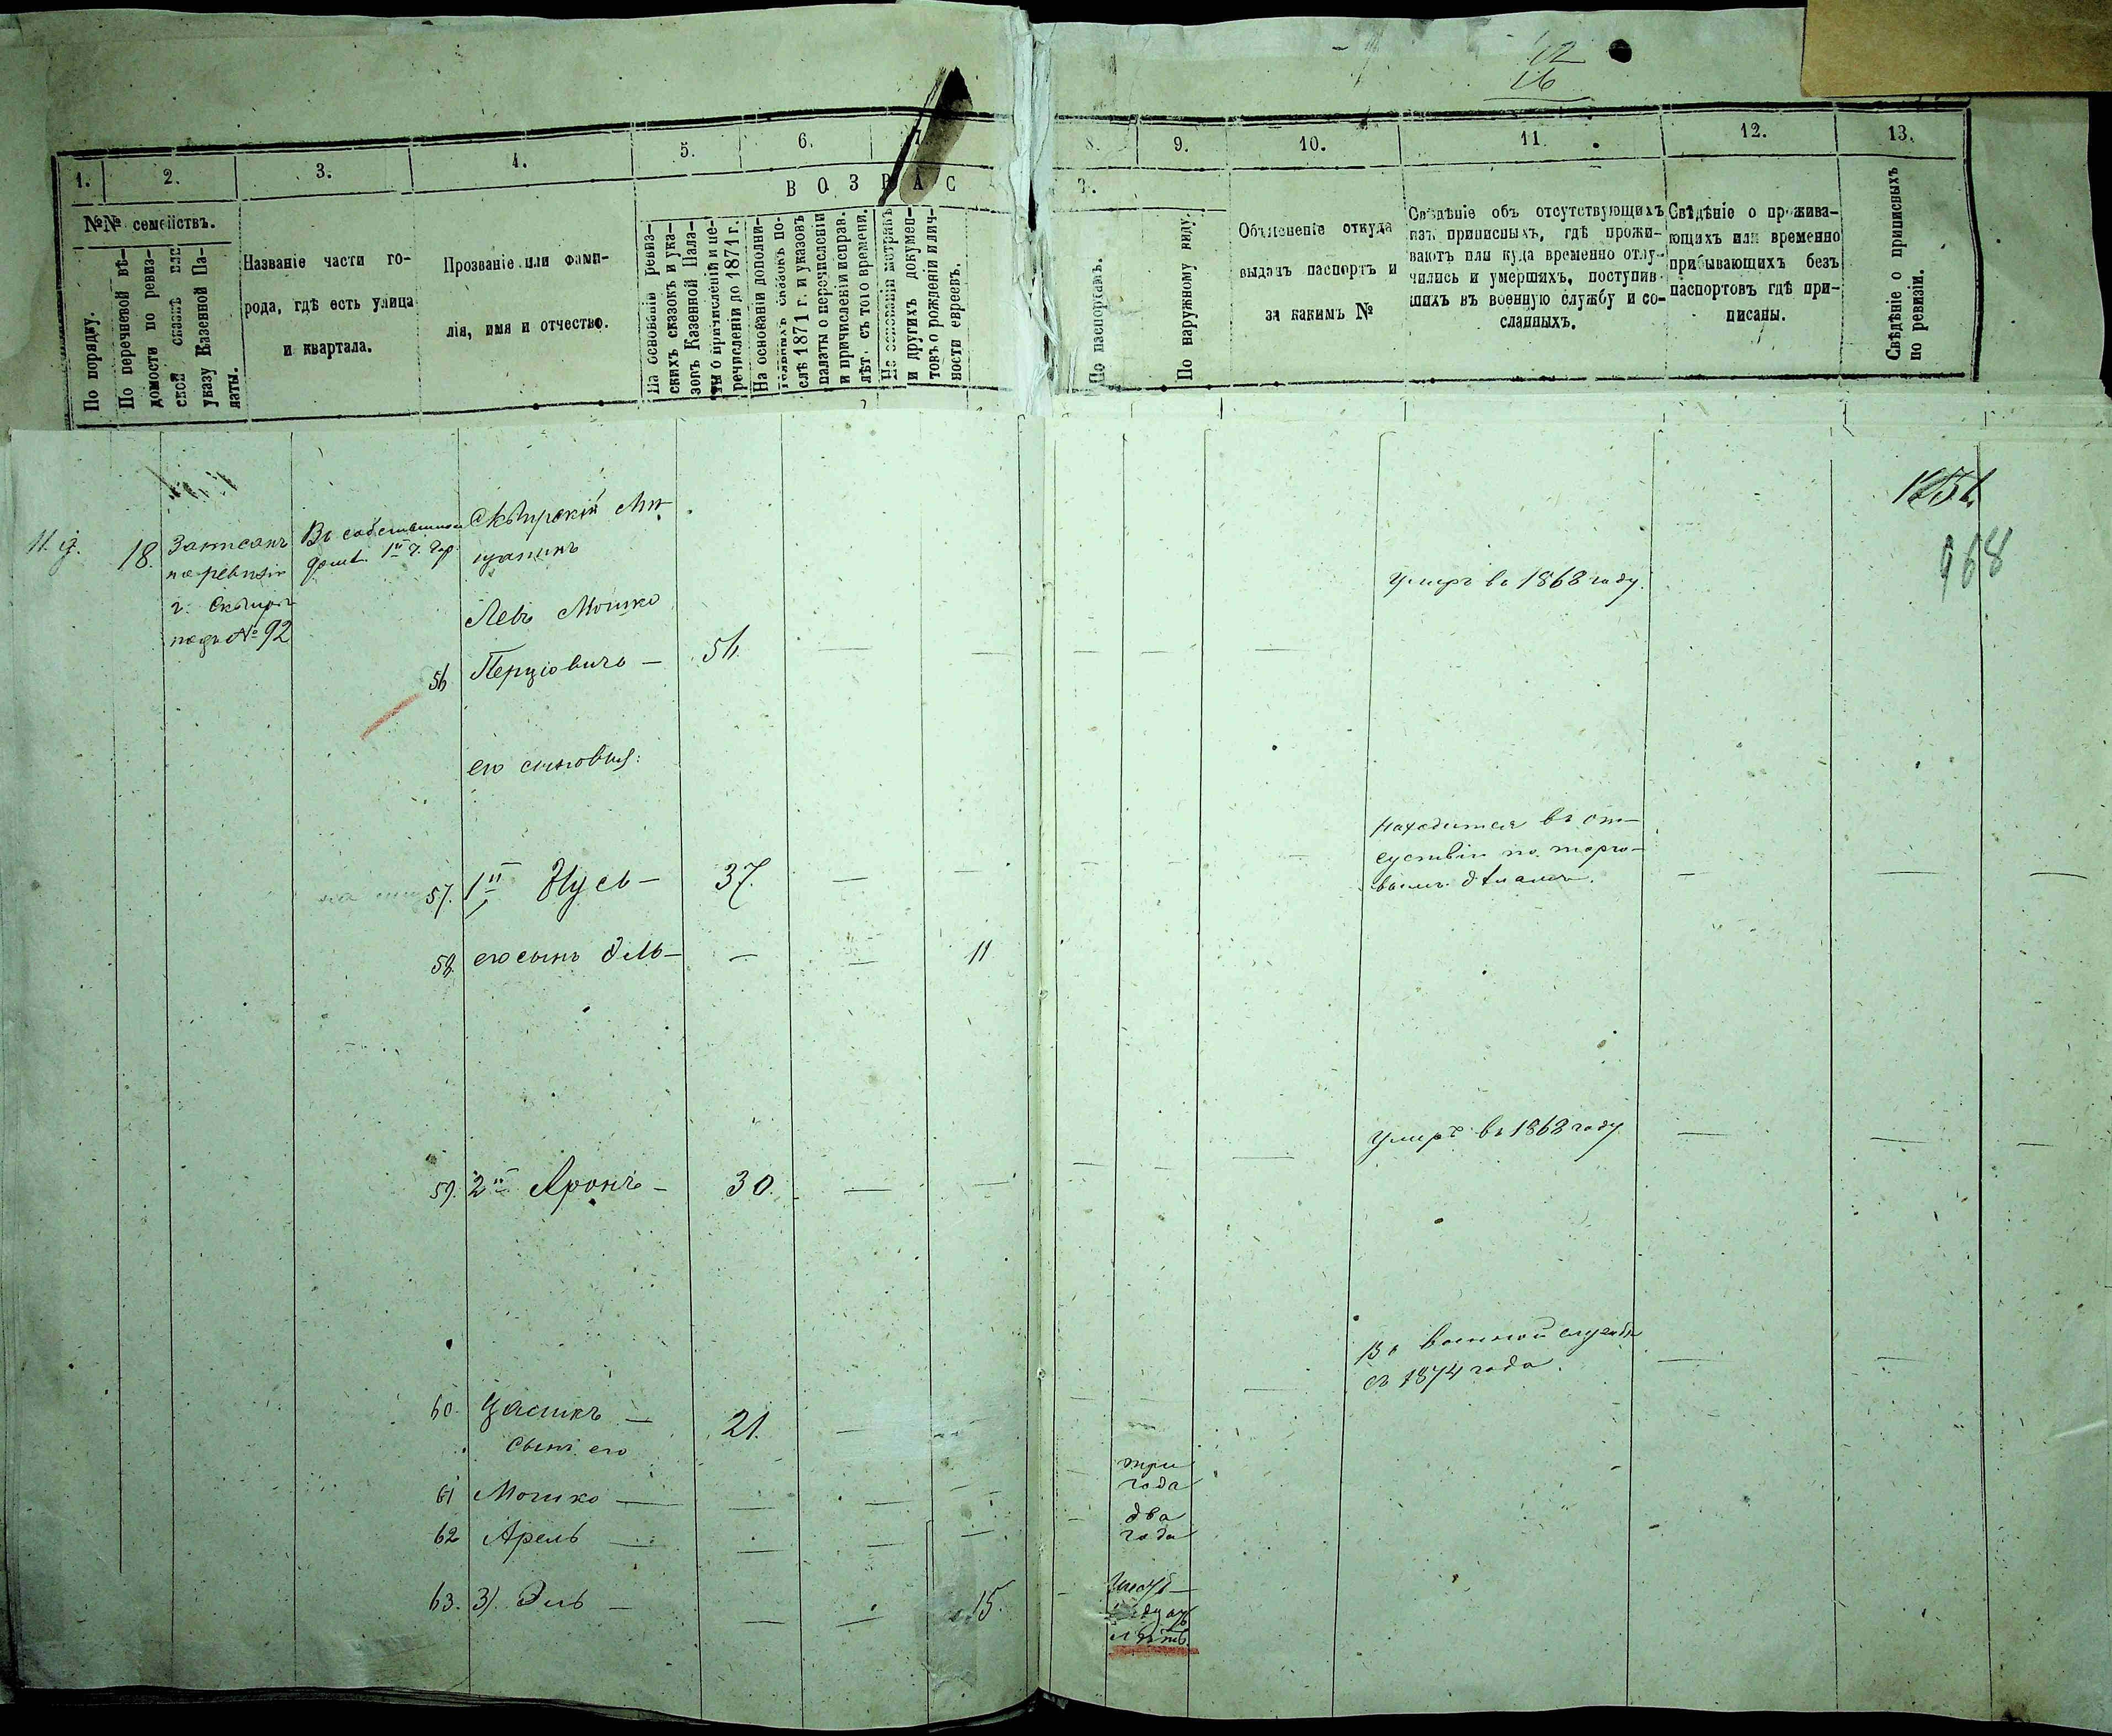 12
16
1.
2.
3.
4.
5.
6.
7.
8.
9.
10.
11.
12.
13.
ВОЗРАСТ.
№№ семействъ.
По порядку.
По перечневой вѣ-
домости по ревиз-
ской сказкѣ или
указу Казенной Па-
латы.
Названіе части го-
рода, гдѣ есть улица
и квартала.
Прозваніе или фами-
лія, имя и отчество.
На основаніи ревиз-
скихъ сказокъ и ука-
зовъ Казенной Пала-
ты о причисленіи и пе-
речисленіи до 1871 г.
На основаніи дополни-
тельныхъ сказокъ по-
слѣ 1871 г. и указовъ
палаты о перечисленіи
и причисленіи исправ.
лѣт. съ того времени.
На основаніи метрикъ
и другихъ докумен-
товъ о рожденіи и лич-
ности евреевъ.
По паспортамъ.
По наружному виду.
Объясненіе откуда
выданъ паспортъ и
за какимъ №
Свѣдѣніе объ отсутствующихъ
изъ приписныхъ, гдѣ прожи-
ваютъ или куда временно отлу-
чились и умершихъ, поступив-
шихъ въ военную службу и со-
сланныхъ.
Свѣдѣніе о прожива-
ющихъ или временно
прибывающихъ безъ
паспортовъ гдѣ при-
писаны.
Свѣдѣніе о приписныхъ
по ревизіи.
968
18.
Записанъ
по ревизіи
г. Сквиры
подъ № 92
Въ собственномъ
домѣ 1й ч. гор.
Сквирскій Мѣ-
щанинъ
Левъ Мошко
56 Перціовичъ — 56.
Умеръ въ 1868 году.
его сыновья:
57. 1й Нусь — 37. — —
Находится въ от-
сутствіи по торго-
вымъ дѣламъ.
58. его сынъ — — 11
59. 2й Аронъ — 30. — —
Умеръ въ 1868 году
60. — 21. —
Въ военной службѣ
съ 1874 года.
сынъ его
61 Мошко — — —
три
года
62 Арель — — — —
два
года
63. 3) Эль — — — 15.
лѣтъ